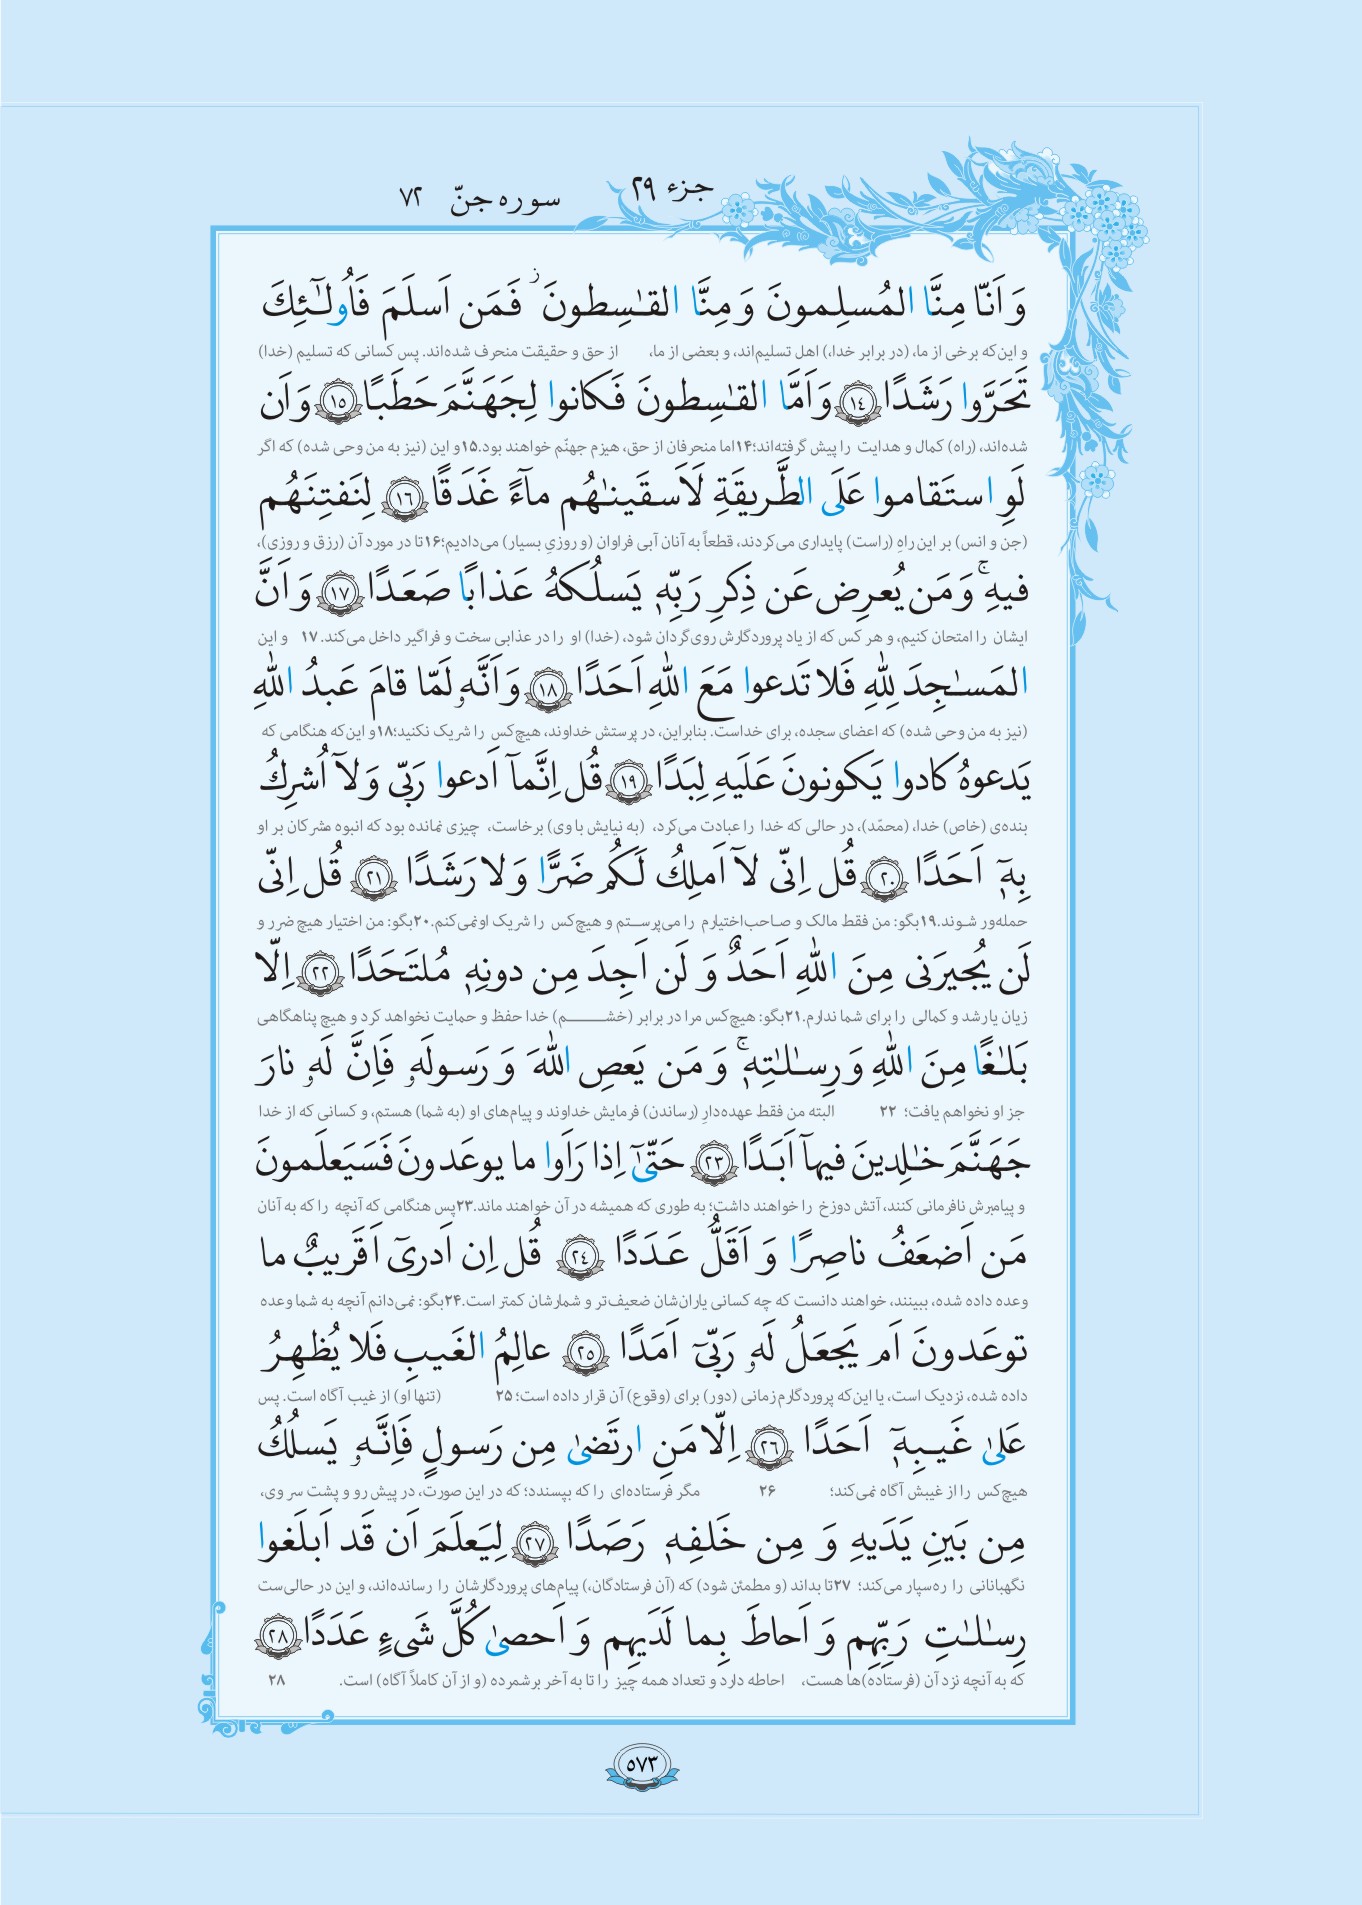 جزء ٢٩
سوره جنّ ٧٢
وَ اَنّا مِنَّا المُسلِمونَ وَ مِنَّا القٰسِطونَ ۖ فَمَن اَسلَمَ فَاُولٰٓئِكَ
و این‌که برخی از ما، (در برابر خدا،) اهل تسلیم‌اند، و بعضی از ما، از حق و حقیقت منحرف شده‌اند. پس کسانی که تسلیم (خدا)
تَحَرَّوا رَشَدًا ١٤ وَ اَمَّا القٰسِطونَ فَكانوا لِجَهَنَّمَ حَطَبًا ١٥ وَ اَن
شده‌اند، (راه) کمال و هدایت را پیش گرفته‌اند؛۱۴اما منحرفان از حق، هیزم جهنّم خواهند بود.۱۵و این (نیز به من وحی شده) که اگر
لَوِ استَقاموا عَلَى الطَّريقَةِ لَاَسقَينٰهُم مآءً غَدَقًا ١٦ لِنَفتِنَهُم
(جن و انس) بر این راهِ (راست) پایداری می‌کردند، قطعاً به آنان آبی فراوان (و روزیِ بسیار) می‌دادیم؛۱۶تا در مورد آن (رزق و روزی)،
فيهِ ۚ وَ مَن يُعرِض عَن ذِكرِ رَبِّهٖ يَسلُكهُ عَذابًا صَعَدًا ١٧ وَ اَنَّ
ایشان را امتحان کنیم، و هر کس که از یاد پروردگارش روی‌گردان شود، (خدا) او را در عذابی سخت و فراگیر داخل می‌کند. ۱۷ و این
المَسٰجِدَ لِلّٰهِ فَلا تَدعوا مَعَ اللّٰهِ اَحَدًا ١٨ وَ اَنَّهٗ لَمّا قامَ عَبدُ اللّٰهِ
(نیز به من وحی شده) که اعضای سجده، برای خداست. بنابراین، در پرستش خداوند، هیچ‌کس را شریک نکنید؛۱۸و این‌که هنگامی که
يَدعوهُ كادوا يَكونونَ عَلَيهِ لِبَدًا ١٩ قُل اِنَّمآ اَدعوا رَبّى وَ لآ اُشرِكُ
بنده‌ی (خاص) خدا، (محمّد)، در حالی که خدا را عبادت می‌کرد، (به نیایش با وی) برخاست، چیزی نمانده بود که انبوه مشرکان بر او
بِهٖٓ اَحَدًا ٢٠ قُل اِنّى لآ اَملِكُ لَكُم ضَرًّا وَ لا رَشَدًا ٢١ قُل اِنّى
حمله‌ور شوند.۱۹بگو: من فقط مالک و صاحب‌اختیارم را می‌پرستم و هیچ‌کس را شریک او نمی‌کنم.۲۰بگو: من اختیار هیچ ضرر و
لَن يُجيرَنى مِنَ اللّٰهِ اَحَدٌ وَ لَن اَجِدَ مِن دونِهٖ مُلتَحَدًا ٢٢ اِلّا
زیان یا رشد و کمالی را برای شما ندارم.۲۱بگو: هیچ‌کس مرا در برابر (خشم) خدا حفظ و حمایت نخواهد کرد و هیچ پناهگاهی
بَلٰغًا مِنَ اللّٰهِ وَ رِسٰلٰتِهٖ ۚ وَ مَن يَعصِ اللّٰهَ وَ رَسولَهٗ فَاِنَّ لَهٗ نارَ
جز او نخواهم یافت؛ ۲۲ البته من فقط عهده‌دارِ (رساندن) فرمایش خداوند و پیام‌های او (به شما) هستم، و کسانی که از خدا
جَهَنَّمَ خٰلِدينَ فيهآ اَبَدًا ٢٣ حَتّىٰٓ اِذا رَاَوا ما يوعَدونَ فَسَيَعلَمونَ
و پیامبرش نافرمانی کنند، آتش دوزخ را خواهند داشت؛ به طوری که همیشه در آن خواهند ماند.۲۳پس هنگامی که آنچه را که به آنان
مَن اَضعَفُ ناصِرًا وَ اَقَلُّ عَدَدًا ٢٤ قُل اِن اَدرىٓ اَقَريبٌ ما
وعده داده شده، ببینند، خواهند دانست که چه کسانی یاران‌شان ضعیف‌تر و شمارشان کمتر است.۲۴بگو: نمی‌دانم آنچه به شما وعده
توعَدونَ اَم يَجعَلُ لَهٗ رَبّىٓ اَمَدًا ٢٥ عالِمُ الغَيبِ فَلا يُظهِرُ
داده شده، نزدیک است، یا این‌که پروردگارم زمانی (دور) برای (وقوع) آن قرار داده است؛ ۲۵ (تنها او) از غیب آگاه است. پس
عَلىٰ غَيبِهٖٓ اَحَدًا ٢٦ اِلّا مَنِ ارتَضىٰ مِن رَسولٍ فَاِنَّهٗ يَسلُكُ
هیچ‌کس را از غیبش آگاه نمی‌کند؛ ۲۶ مگر فرستاده‌ای را که بپسندد؛ که در این صورت، در پیش رو و پشت سر وی،
مِن بَينِ يَدَيهِ وَ مِن خَلفِهٖ رَصَدًا ٢٧ لِيَعلَمَ اَن قَد اَبلَغوا
نگهبانانی را ره‌سپار می‌کند؛ ۲۷تا بداند (و مطمئن شود) که (آن فرستادگان،) پیام‌های پروردگارشان را رسانده‌اند، و این در حالی‌ست
رِسٰلٰتِ رَبِّهِم وَ اَحاطَ بِما لَدَيهِم وَ اَحصىٰ كُلَّ شَىءٍ عَدَدًا ٢٨
که به آنچه نزد آن (فرستاده)ها هست، احاطه دارد و تعداد همه چیز را تا به آخر برشمرده (و از آن کاملاً آگاه) است. ۲۸
٥٧٣